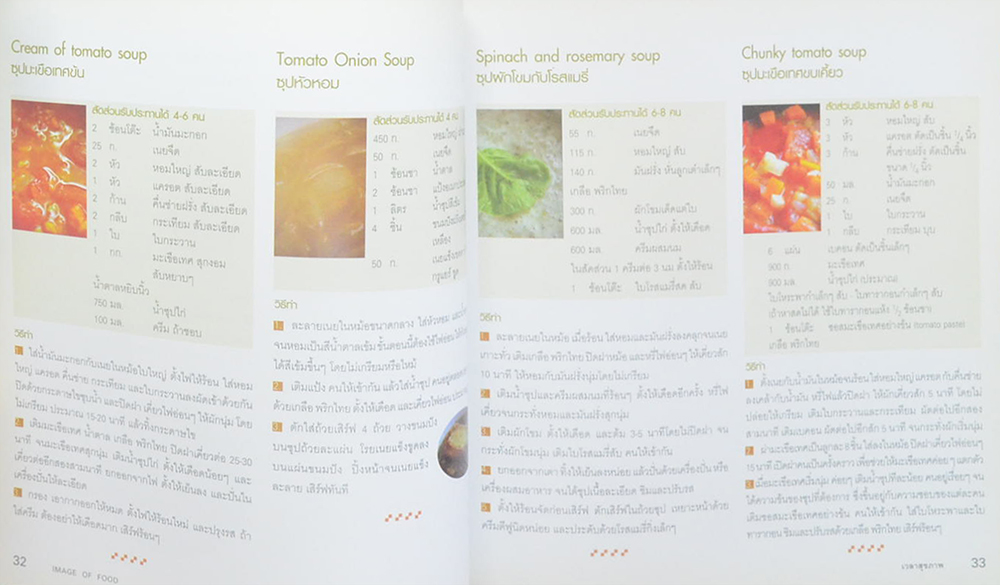 Cream of tomato soup
ซุปมะเขือเทศข้น
สัดส่วนรับประทานได้ 4-6 คน
2 ช้อนโต๊ะ น้ำมันมะกอก
25 ก. เนยจืด
2 หัว หอมใหญ่ สับละเอียด
1 หัว แครอต สับละเอียด
2 ก้าน คื่นช่ายฝรั่ง สับละเอียด
2 กลีบ กระเทียม สับละเอียด
1 ใบ ใบกระวาน
1 กก. มะเขือเทศ สุกงอม
สับหยาบๆ
น้ำตาลหยิบนิ้ว
750 มล. น้ำซุปไก่
100 มล. ครีม ถ้าชอบ
วิธีทำ
1 ใส่น้ำมันมะกอกกับเนยในหม้อใบใหญ่ ตั้งไฟให้ร้อน ใส่หอม
ใหญ่ แครอต คื่นช่าย กระเทียม และใบกระวานลงผัดเข้าด้วยกัน
ปิดด้วยกระดาษไขชุบน้ำ และปิดฝา เคี่ยวไฟอ่อนๆ ให้ผักนุ่ม โดย
ไม่เกรียม ประมาณ 15-20 นาที แล้วทิ้งกระดาษไข
2 เติมมะเขือเทศ น้ำตาล เกลือ พริกไทย ปิดฝาเคี่ยวต่อ 25-30
นาที จนมะเขือเทศสุกนุ่ม เติมน้ำซุปไก่ ตั้งให้เดือดน้อยๆ และ
เคี่ยวต่ออีกสองสามนาที ยกออกจากไฟ ตั้งให้เย็นลง และปั่นใน
เครื่องปั่นให้ละเอียด
3 กรอง เอากากออกให้หมด ตั้งไฟให้ร้อนใหม่ และปรุงรส ถ้า
ใส่ครีม ต้องอย่าให้เดือดมาก เสิร์ฟร้อนๆ
32 IMAGE OF FOOD
Tomato Onion Soup
ซุปหัวหอม
สัดส่วนรับประทานได้ 4 คน
450 ก. หอมใหญ่
50 ก. เนยจืด
1 ช้อนชา น้ำตาล
2 ช้อนชา
1 ลิตร
4 ชิ้น
50 ก.
วิธีทำ
1 ละลายเนยในหม้อขนาดกลาง ใส่หัวหอม
จนหอมเป็นสีน้ำตาลเข้ม ขั้นตอนนี้ต้องใช้ไฟอ่อน
ได้สีเข้มขึ้นๆ โดยไม่เกรียมหรือไหม้
2 เติมแป้ง คนให้เข้ากัน แล้วใส่น้ำซุป
ด้วยเกลือ พริกไทย ตั้งให้เดือด และเคี่ยวไฟอ่อน
3 ตักใส่ถ้วยเสิร์ฟ 4 ถ้วย วางขนมปัง
บนซุปถ้วยละแผ่น โรยเนยแข็งขูดลง
บนแผ่นขนมปัง ปิ้งหน้าจนเนยแข็ง
ละลาย เสิร์ฟทันที
Spinach and rosemary soup
ซุปผักโขมกับโรสแมรี่
สัดส่วนรับประทานได้ 6-8 คน
55 ก. เนยจืด
115 ก. หอมใหญ่ สับ
140 ก. มันฝรั่ง หั่นลูกเต๋าเล็กๆ
เกลือ พริกไทย
300 ก. ผักโขมเด็ดแต่ใบ
600 มล. น้ำซุปไก่ ตั้งให้เดือด
600 มล. ครีมผสมนม
ในสัดส่วน 1 ครีมต่อ 3 นม ตั้งให้ร้อน
1 ช้อนโต๊ะ ใบโรสแมรี่สด สับ
วิธีทำ
1 ละลายเนยในหม้อ เมื่อร้อน ใส่หอมและมันฝรั่งลงคลุกจนเนย
เกาะทั่ว เติมเกลือ พริกไทย ปิดฝาหม้อ และหรี่ไฟอ่อนๆ ให้เคี่ยวสัก
10 นาที ให้หอมกับมันฝรั่งนุ่มโดยไม่เกรียม
2 เติมน้ำซุปและครีมผสมนมที่ร้อนๆ ตั้งให้เดือดอีกครั้ง หรี่ไฟ
เคี่ยวจนกระทั่งหอมและมันฝรั่งสุกนุ่ม
3 เติมผักโขม ตั้งให้เดือด และต้ม 3-5 นาทีโดยไม่ปิดฝา จน
กระทั่งผักโขมนุ่ม เติมใบโรสแมรี่สับ คนให้เข้ากัน
4 ยกออกจากเตา ทิ้งให้เย็นลงหน่อย แล้วปั่นด้วยเครื่องปั่น หรือ
เครื่องผสมอาหาร จนได้ซุปเนื้อละเอียด ชิมและปรับรส
5 ตั้งให้ร้อนจัดก่อนเสิร์ฟ ตักเสิร์ฟในถ้วยซุป เหยาะหน้าด้วย
ครีมตีฟูนิดหน่อย และประดับด้วยโรสแมรี่กิ่งเล็กๆ
Chunky tomato soup
ซุปมะเขือเทศขบเคี้ยว
สัดส่วนรับประทานได้ 6-8 คน
3 หัว หอมใหญ่ สับ
3 หัว แครอต ตัดเป็นชิ้น 1/4 นิ้ว
3 ก้าน คื่นช่ายฝรั่ง ตัดเป็นชิ้น
ขนาด 1/4 นิ้ว
50 มล. น้ำมันมะกอก
25 ก. เนยจืด
1 ใบ ใบกระวาน
1 กลีบ กระเทียม บุบ
6 แผ่น เบคอน ตัดเป็นชิ้นเล็กๆ
900 ก. มะเขือเทศ
900 มล. น้ำซุปไก่ ประมาณ
ใบโหระพากำเล็กๆ สับ - ใบทาร์รากอนกำเล็กๆ สับ
(ถ้าหาสดไม่ได้ ใช้ใบทาร์รากอนแห้ง 1/2 ช้อนชา)
1 ช้อนโต๊ะ ซอสมะเขือเทศอย่างข้น (tomato paste)
เกลือ พริกไทย
วิธีทำ
1 ตั้งเนยกับน้ำมันในหม้อจนร้อน ใส่หอมใหญ่ แครอต กับคื่นช่าย
ลงเคล้ากับน้ำมัน หรี่ไฟแล้วปิดฝา ให้ผักเคี่ยวสัก 5 นาที โดยไม่
ปล่อยให้เกรียม เติมใบกระวานและกระเทียม ผัดต่อไปอีกสอง
สามนาที เติมเบคอน ผัดต่อไปอีกสัก 5 นาที จนกระทั่งผักเริ่มนุ่ม
2 ผ่ามะเขือเทศเป็นลูกละ 8 ชิ้น ใส่ลงในหม้อ ปิดฝาเคี่ยวไฟอ่อนๆ
15 นาที เปิดฝาคนเป็นครั้งคราว เพื่อช่วยให้มะเขือเทศค่อยๆ แตกตัว
3 เมื่อมะเขือเทศเริ่มนุ่ม ค่อยๆ เติมน้ำซุปทีละน้อย คนอยู่เรื่อยๆ จน
ได้ความข้นของซุปที่ต้องการ ซึ่งขึ้นอยู่กับความชอบของแต่ละคน
เติมซอสมะเขือเทศอย่างข้น คนให้เข้ากัน ใส่ใบโหระพาและใบ
ทาร์รากอน ชิมและปรับรสด้วยเกลือ พริกไทย เสิร์ฟร้อนๆ
เวลาสุขภาพ 33